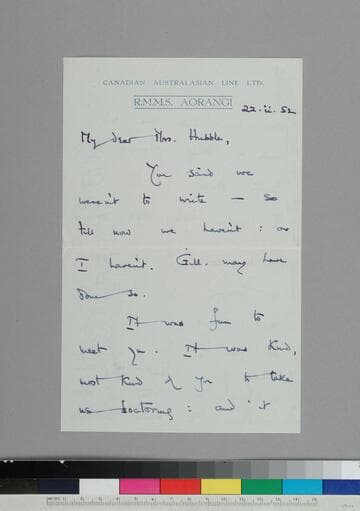 CANADIAN AUSTRALASIAN LINE LTD.
R.M.M.S. AORANGI
22.ii.52
My dear Mrs. Hubble,
You said we
weren't to write — so
till now we haven't : or
I haven't. Gill. may have
done so.
It was fun to
meet you. It was kind,
most kind of you to take
us doctoring : and it